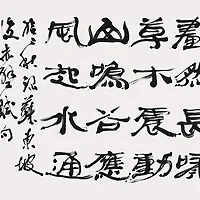 劃然長嘯
草木震動
山鳴谷應
風起水涌
秋録蘇東坡
後赤壁賦句